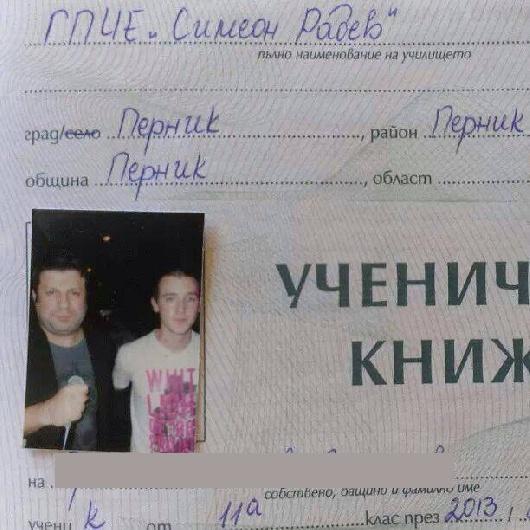 ГПЧЕ „Симеон Радев"
пълно наименование на училището
град/село Перник, район Перник
община Перник, област
УЧЕНИЧ
КНИЖ
на
собствено, бащино и фамилно име
учени к от 11а клас през 2013 /